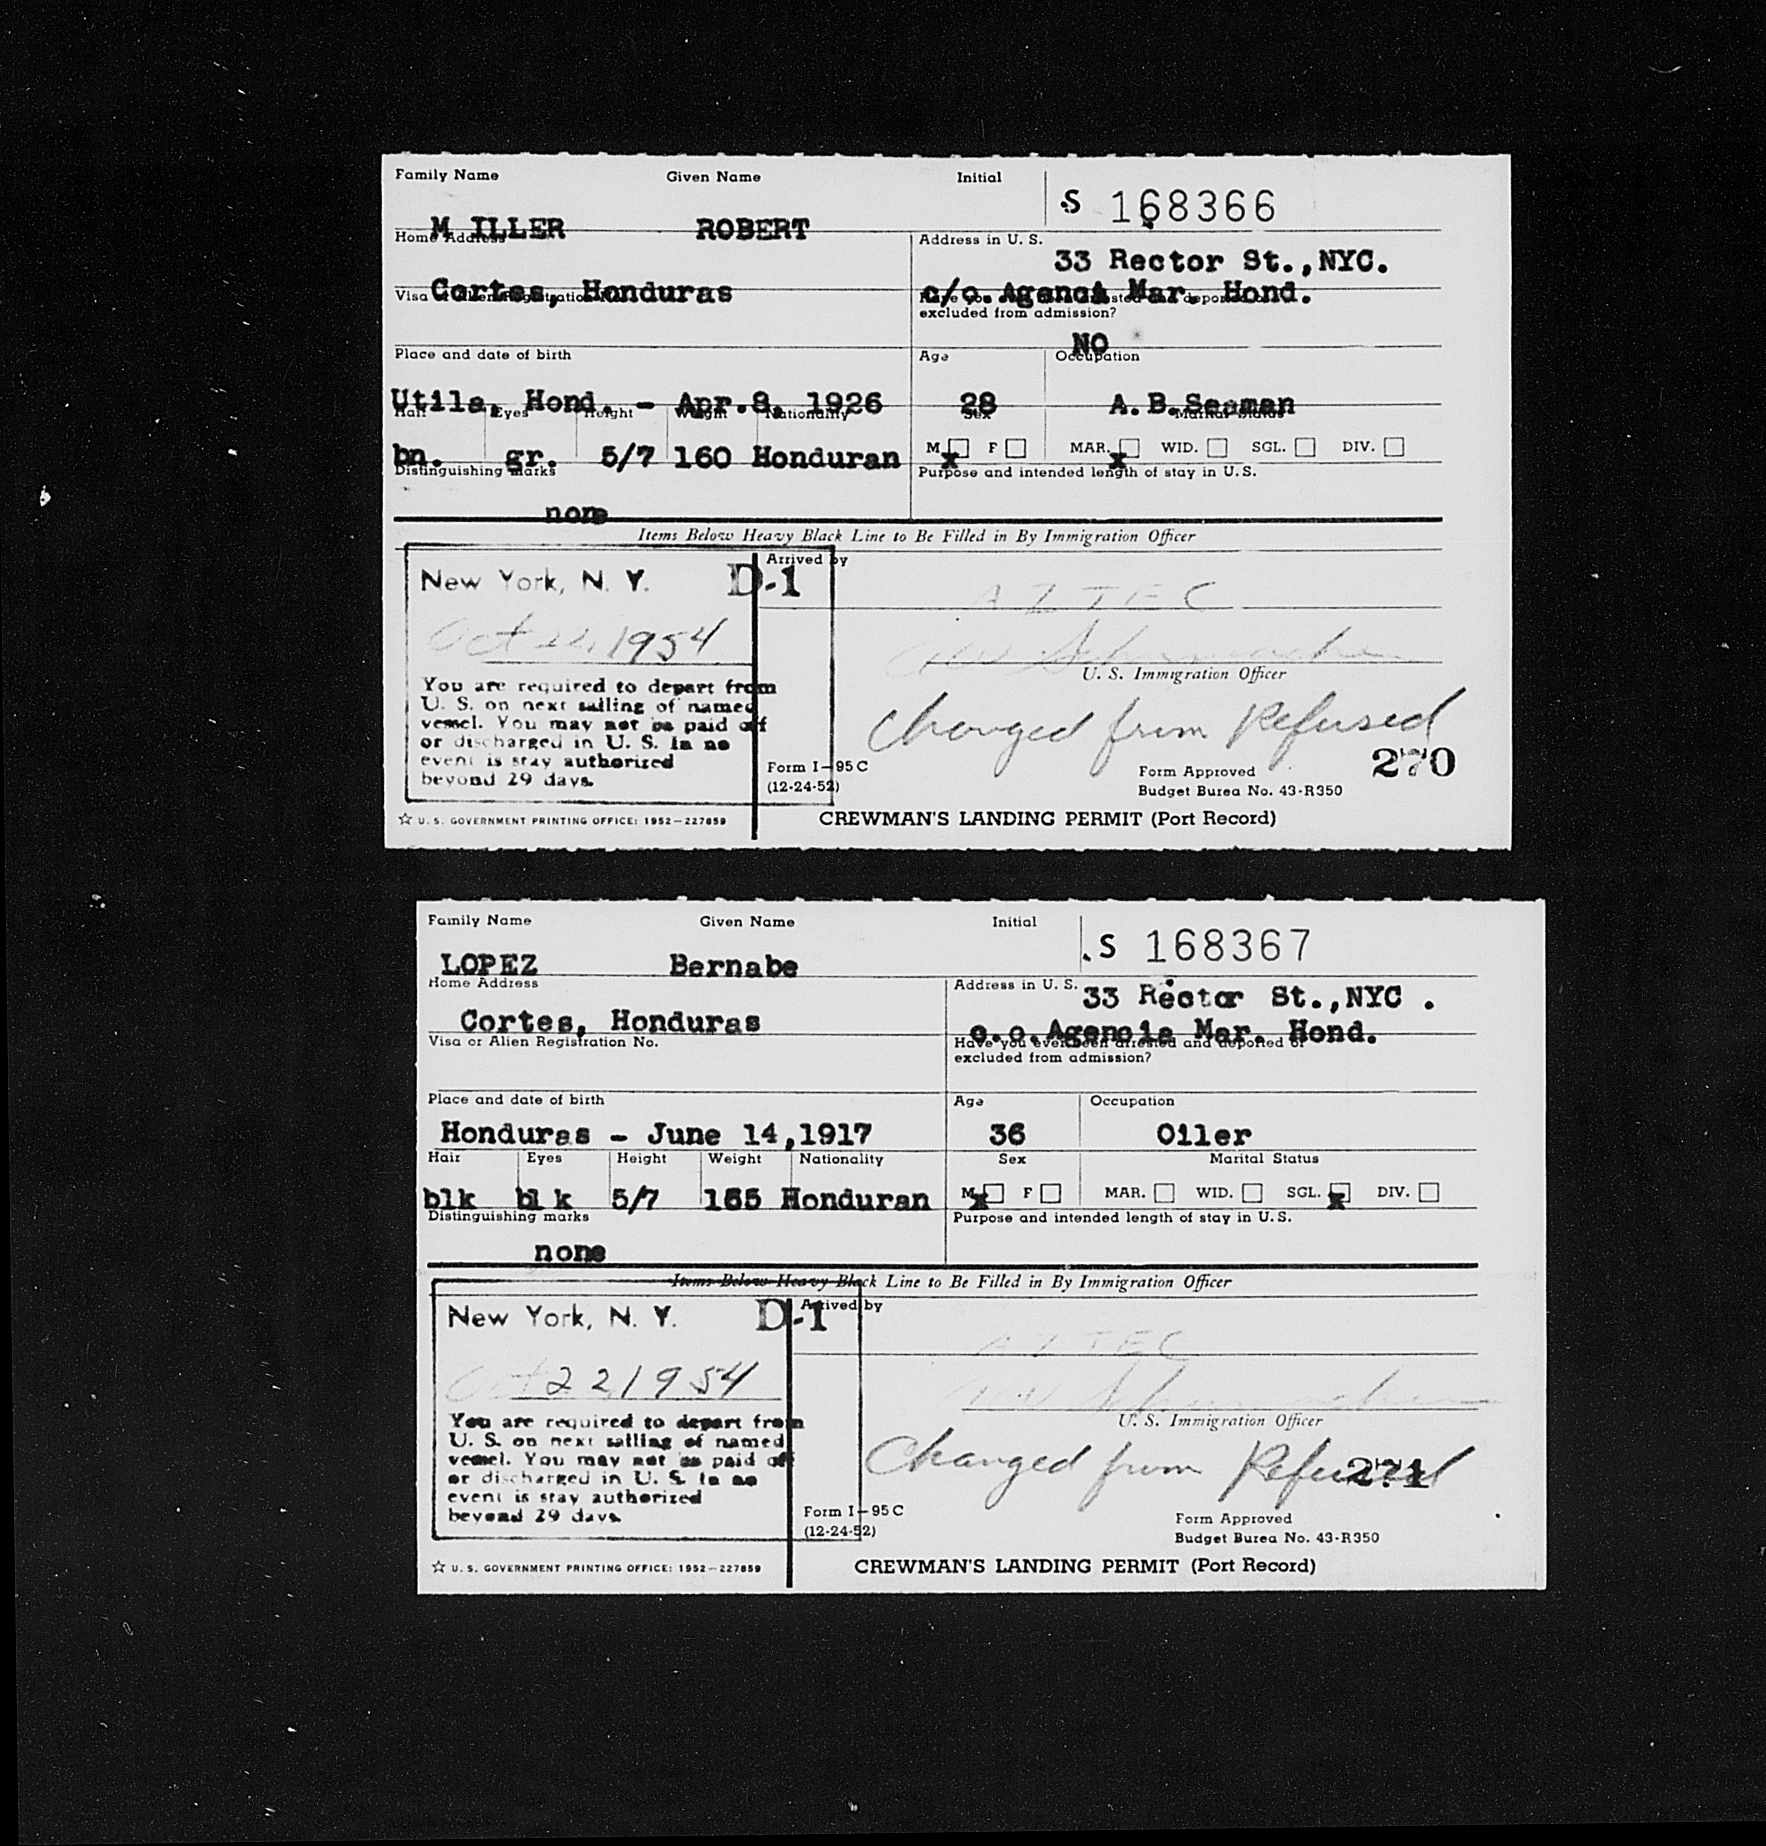 Family Name Given Name Initial
S 168366
M ILLER ROBERT
Home Address Address in U. S.
33 Rector St.,NYC.
Cortes, Honduras c/o Agenci Mar. Hond.
Visa or Alien Registration No. Have you ever been arrested and deported or
excluded from admission?
NO
Place and date of birth Age Occupation
Utila, Hond. - Apr.8, 1926 28 A.B.Seaman
Hair Eyes Height Weight Nationality Sex Marital Status
bn. gr. 5/7 160 Honduran M x F MAR. x WID. SGL. DIV.
Distinguishing marks Purpose and intended length of stay in U.S.
none
Items Below Heavy Black Line to Be Filled in By Immigration Officer
Arrived by
New York, N. Y. D-1
AZTEC
Oct 22, 1954
U. S. Immigration Officer
You are required to depart from
U. S. on next sailing of named
vessel. You may not be paid off
or discharged in U. S. In no
event is stay authorized
beyond 29 days.
Changed from Refused
270
Form I-95C
(12-24-52)
Form Approved
Budget Burea No. 43-R350
☆ U. S. GOVERNMENT PRINTING OFFICE: 1952-227859
CREWMAN'S LANDING PERMIT (Port Record)
Family Name Given Name Initial
.S 168367
LOPEZ Bernabe
Home Address Address in U. S.
33 Rector St.,NYC .
Cortes, Honduras c.o.Agencia Mar. Hond.
Visa or Alien Registration No. Have you ever been arrested and deported or
excluded from admission?
Place and date of birth Age Occupation
Honduras - June 14,1917 36 Oiler
Hair Eyes Height Weight Nationality Sex Marital Status
blk bl k 5/7 Honduran M x F MAR. WID. SGL. x DIV.
Distinguishing marks Purpose and intended length of stay in U.S.
none
Items Below Heavy Black Line to Be Filled in By Immigration Officer
Arrived by
New York, N. Y. D-1
AZTEC
Oct 22, 1954
U. S. Immigration Officer
You are required to depart from
U. S. on next sailing of named
vessel. You may not be paid off
or discharged in U. S. In no
event is stay authorized
beyond 29 days.
Changed from Refused
271
Form I-95C
(12-24-52)
Form Approved
Budget Burea No. 43-R350
☆ U. S. GOVERNMENT PRINTING OFFICE: 1952-227859
CREWMAN'S LANDING PERMIT (Port Record)